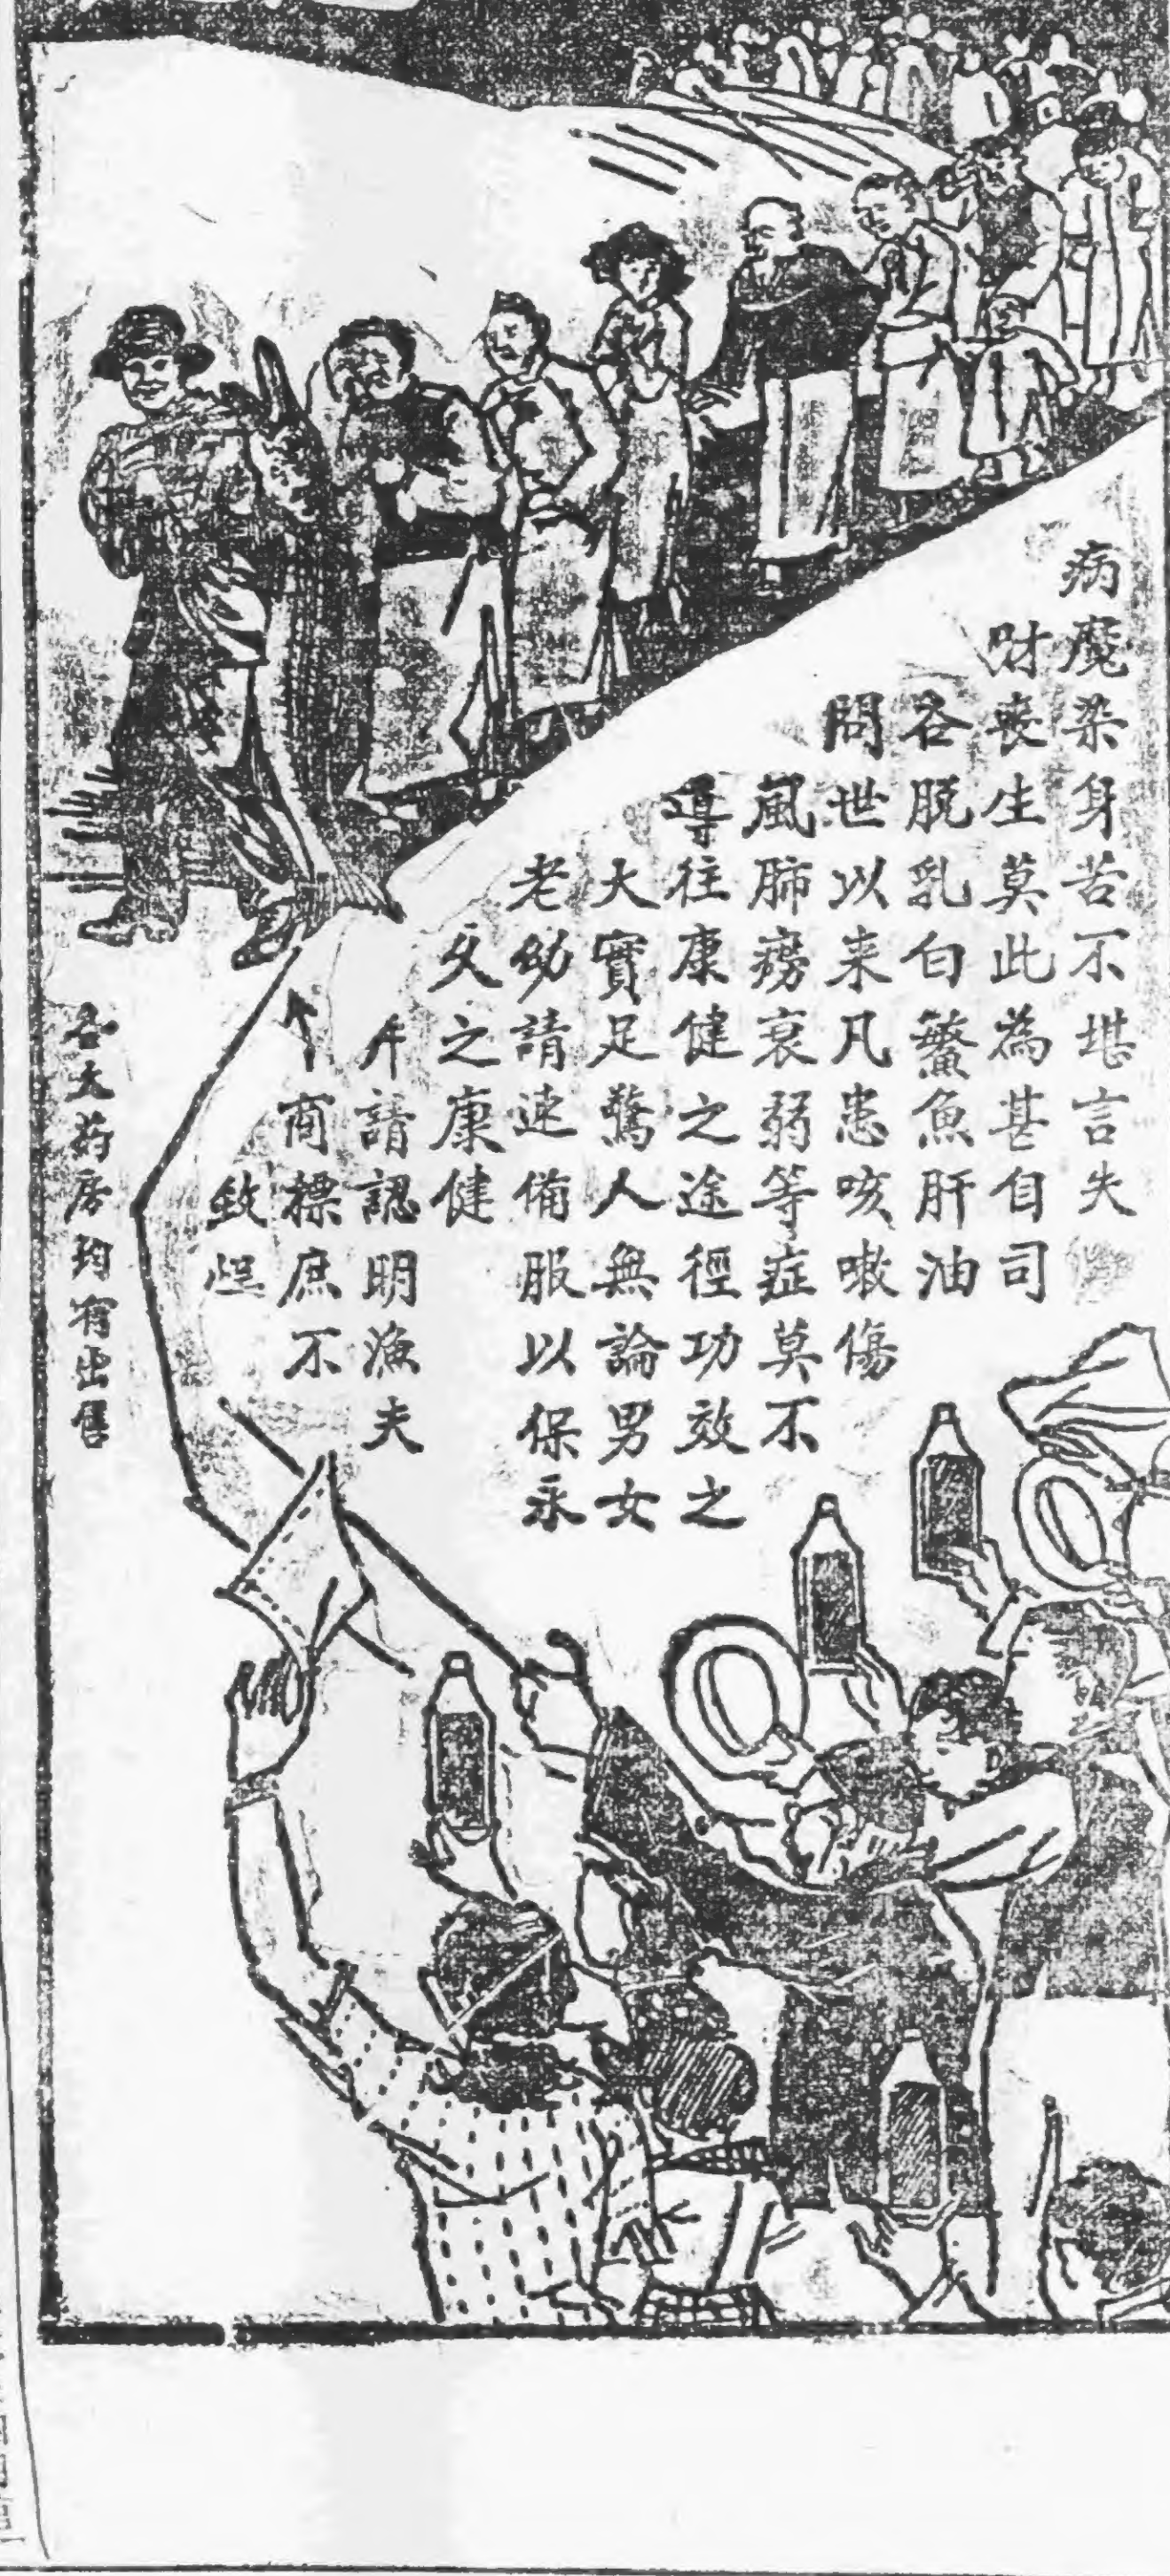 病魔染身苦不堪言失
財喪生莫此為甚自司
各脫乳白鰵魚肝油
問世以来凡患咳嗽傷
風肺癆衰弱等症莫不
導往康健之途徑功效之
大實足驚人無論男女
老幼請速備服以保永
久之康健
請認明漁夫
商標庶不
致
各大药房均有出售